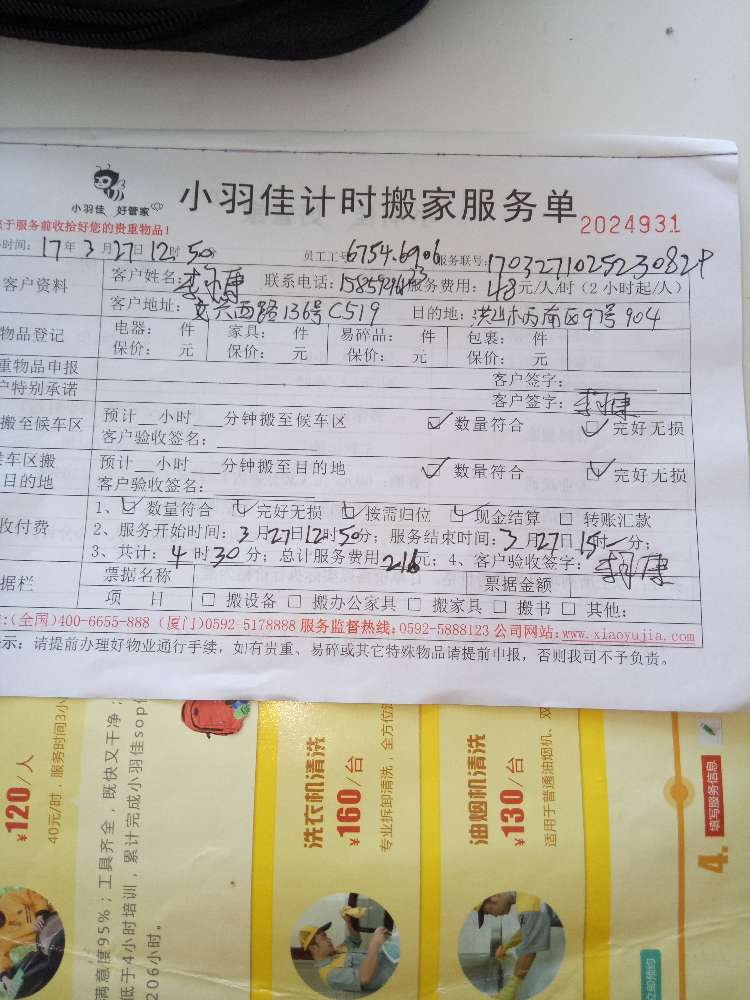 小羽佳 好管家
小羽佳计时搬家服务单 2024931
于服务前收拾好您的贵重物品!
时间: 17年3月27日12时50分 员工工号6754.6906 服务联号: 1703271025230829
客户资料 客户姓名: 联系电话: 服务费用: 48元/人/时 (2小时起/人)
客户地址: 文兴西路136号C519 目的地: 南区97号904
物品登记 电器: 件 家具: 件 易碎品: 件 包裹: 件
保价: 元 保价: 元 保价: 元 保价: 元
重物品申报 客户签字:
户特别承诺 客户签字:
搬至候车区 预计__小时___分钟搬至候车区 ☑数量符合 ☑完好无损
客户验收签名:
车区搬 预计__小时___分钟搬至目的地 ☑数量符合 ☑完好无损
目的地 客户验收签名:
收付费 1、☑数量符合 ☑完好无损 ☑按需归位 ☑现金结算 □转账汇款
2、服务开始时间: 3月27日12时50分; 服务结束时间: 3月27日15时 分;
3、共计: 4时30分; 总计服务费用216元; 4、客户验收签字:
据栏 票据名称 票据金额
项 目 □搬设备 □搬办公家具 □搬家具 □搬书 □其他:
:(全国)400-6655-888 (厦门)0592-5178888 服务监督热线:0592-5888123 公司网站:www.xiaoyujia.com
示: 请提前办理好物业通行手续, 如有贵重、易碎或其它特殊物品请提前申报, 否则我司不予负责。
¥120/人
40元/时, 服务时间3小
满意度95%; 工具齐全, 既快又干净;
低于4小时培训, 累计完成小羽佳sop
206小时。
洗衣机清洗
¥160/台
专业拆卸清洗, 全方位
油烟机清洗
¥130/台
适用于普通油烟机、双
4. 填写服务信息
立即预约